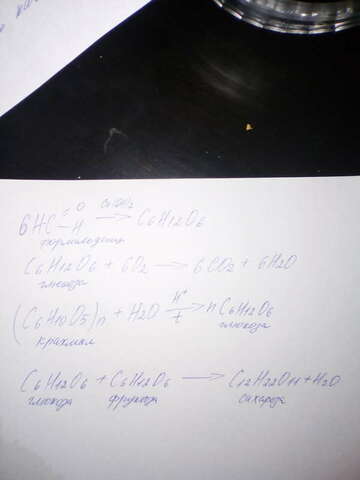 6HC =O -H Ca(OH)2 → C6H12O6
формальдегид
C6H12O6 + 6O2 → 6CO2 + 6H2O
глюкоза
(C6H10O5)n + H2O H+ t → n C6H12O6
крахмал глюкоза
C6H12O6 + C6H12O6 → C12H22O11 + H2O
глюкоза фруктоза сахароза